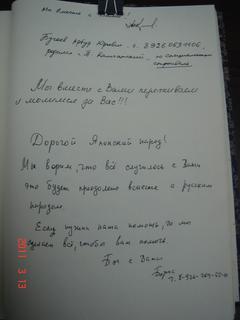 Мы вместе с
Бучаев Артур Юрьевич т. 8926 063 1106,
строитель.
Мы вместе с Вами переживаем
и молимся за Вас!!!
Дорогой Японский народ!
Мы верим, что всё случилось с Вами
это будет преодолено вместе с русским
народом.
Если нужна наша помощь, то мы
сделаем всё, чтобы вам помочь.
Бог с Вами
Борис
2011 3 13